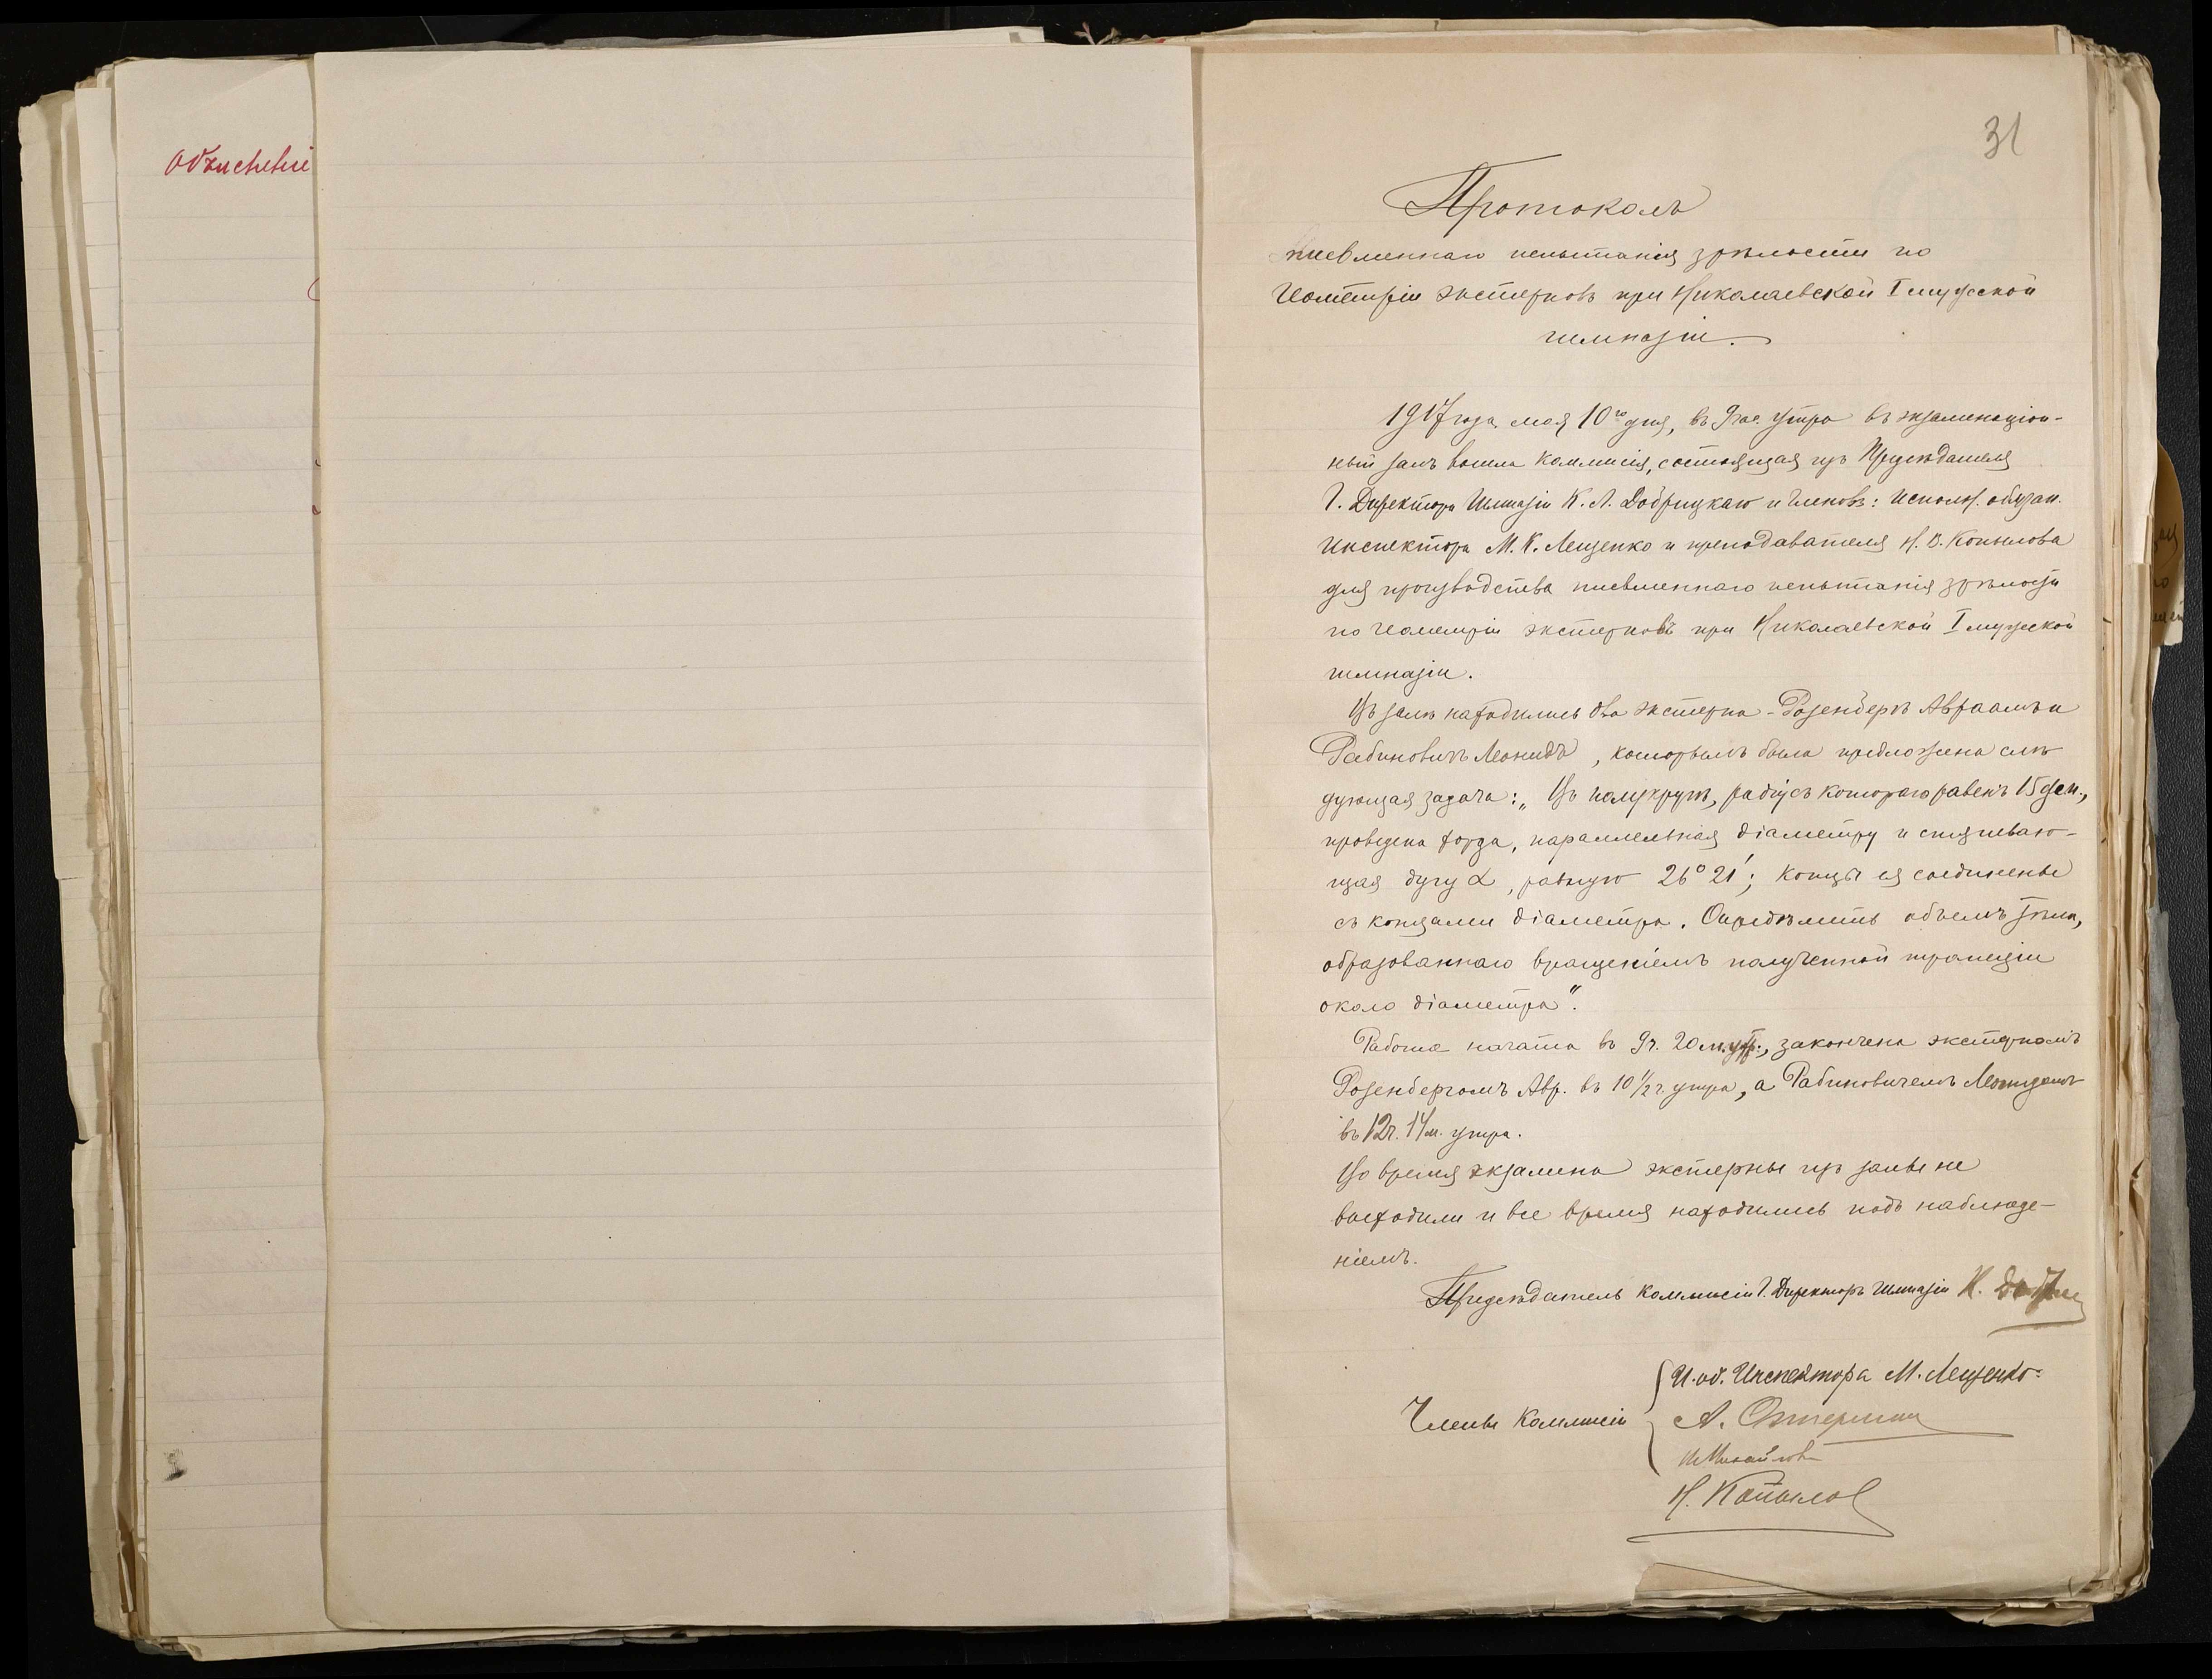 Объясненіе
31
Протоколъ
письменнаго испытанія зрѣлости по
геометріи экстерновъ при Николаевской I мужской
гимназіи.
1917 года мая 10го дня, въ 9 час. утра въ экзаменаціон-
ный залъ вошла коммисія, состоящая изъ Предсѣдателя
Г. Директора Гимназіи К. Л. Добрицкаго и членовъ: исполн. обязан.
Инспектора М. К. Лещенко и преподавателя Н. В. Копылова
для производства письменнаго испытанія зрѣлости
по геометріи экстерновъ при Николаевской I мужской
гимназіи.
Въ залѣ находились два экстерна - Розенбергъ Авраамъ и
Рабиновичъ Леонидъ, которымъ была предложена слѣ
дующая задача: „Въ полукругѣ, радіусъ котораго равенъ 15 дем.,
проведена хорда, параллельная діаметру и стягиваю-
щая дугу α, равную 26° 21′; концы ея соединены
съ концами діаметра. Опредѣлить объемъ тѣла,
образованнаго вращеніемъ полученной трапеціи
около діаметра".
Работа начата въ 9 ч. 20 м. утр., закончена экстерномъ
Розенбергомъ Авр. въ 10 1/2 ч. утра, а Рабиновичемъ Леонидомъ
въ 12 ч. 14 м. утра.
Во время экзамена экстерны изъ залы не
выходили и все время находились подъ наблюде-
ніемъ.
Предсѣдатель Коммисіи Г. Директоръ Гимназіи К.
И. об. Инспектора М. Лещенко.
Члены Коммисіи
А.
Михайловъ
Н. Копылов